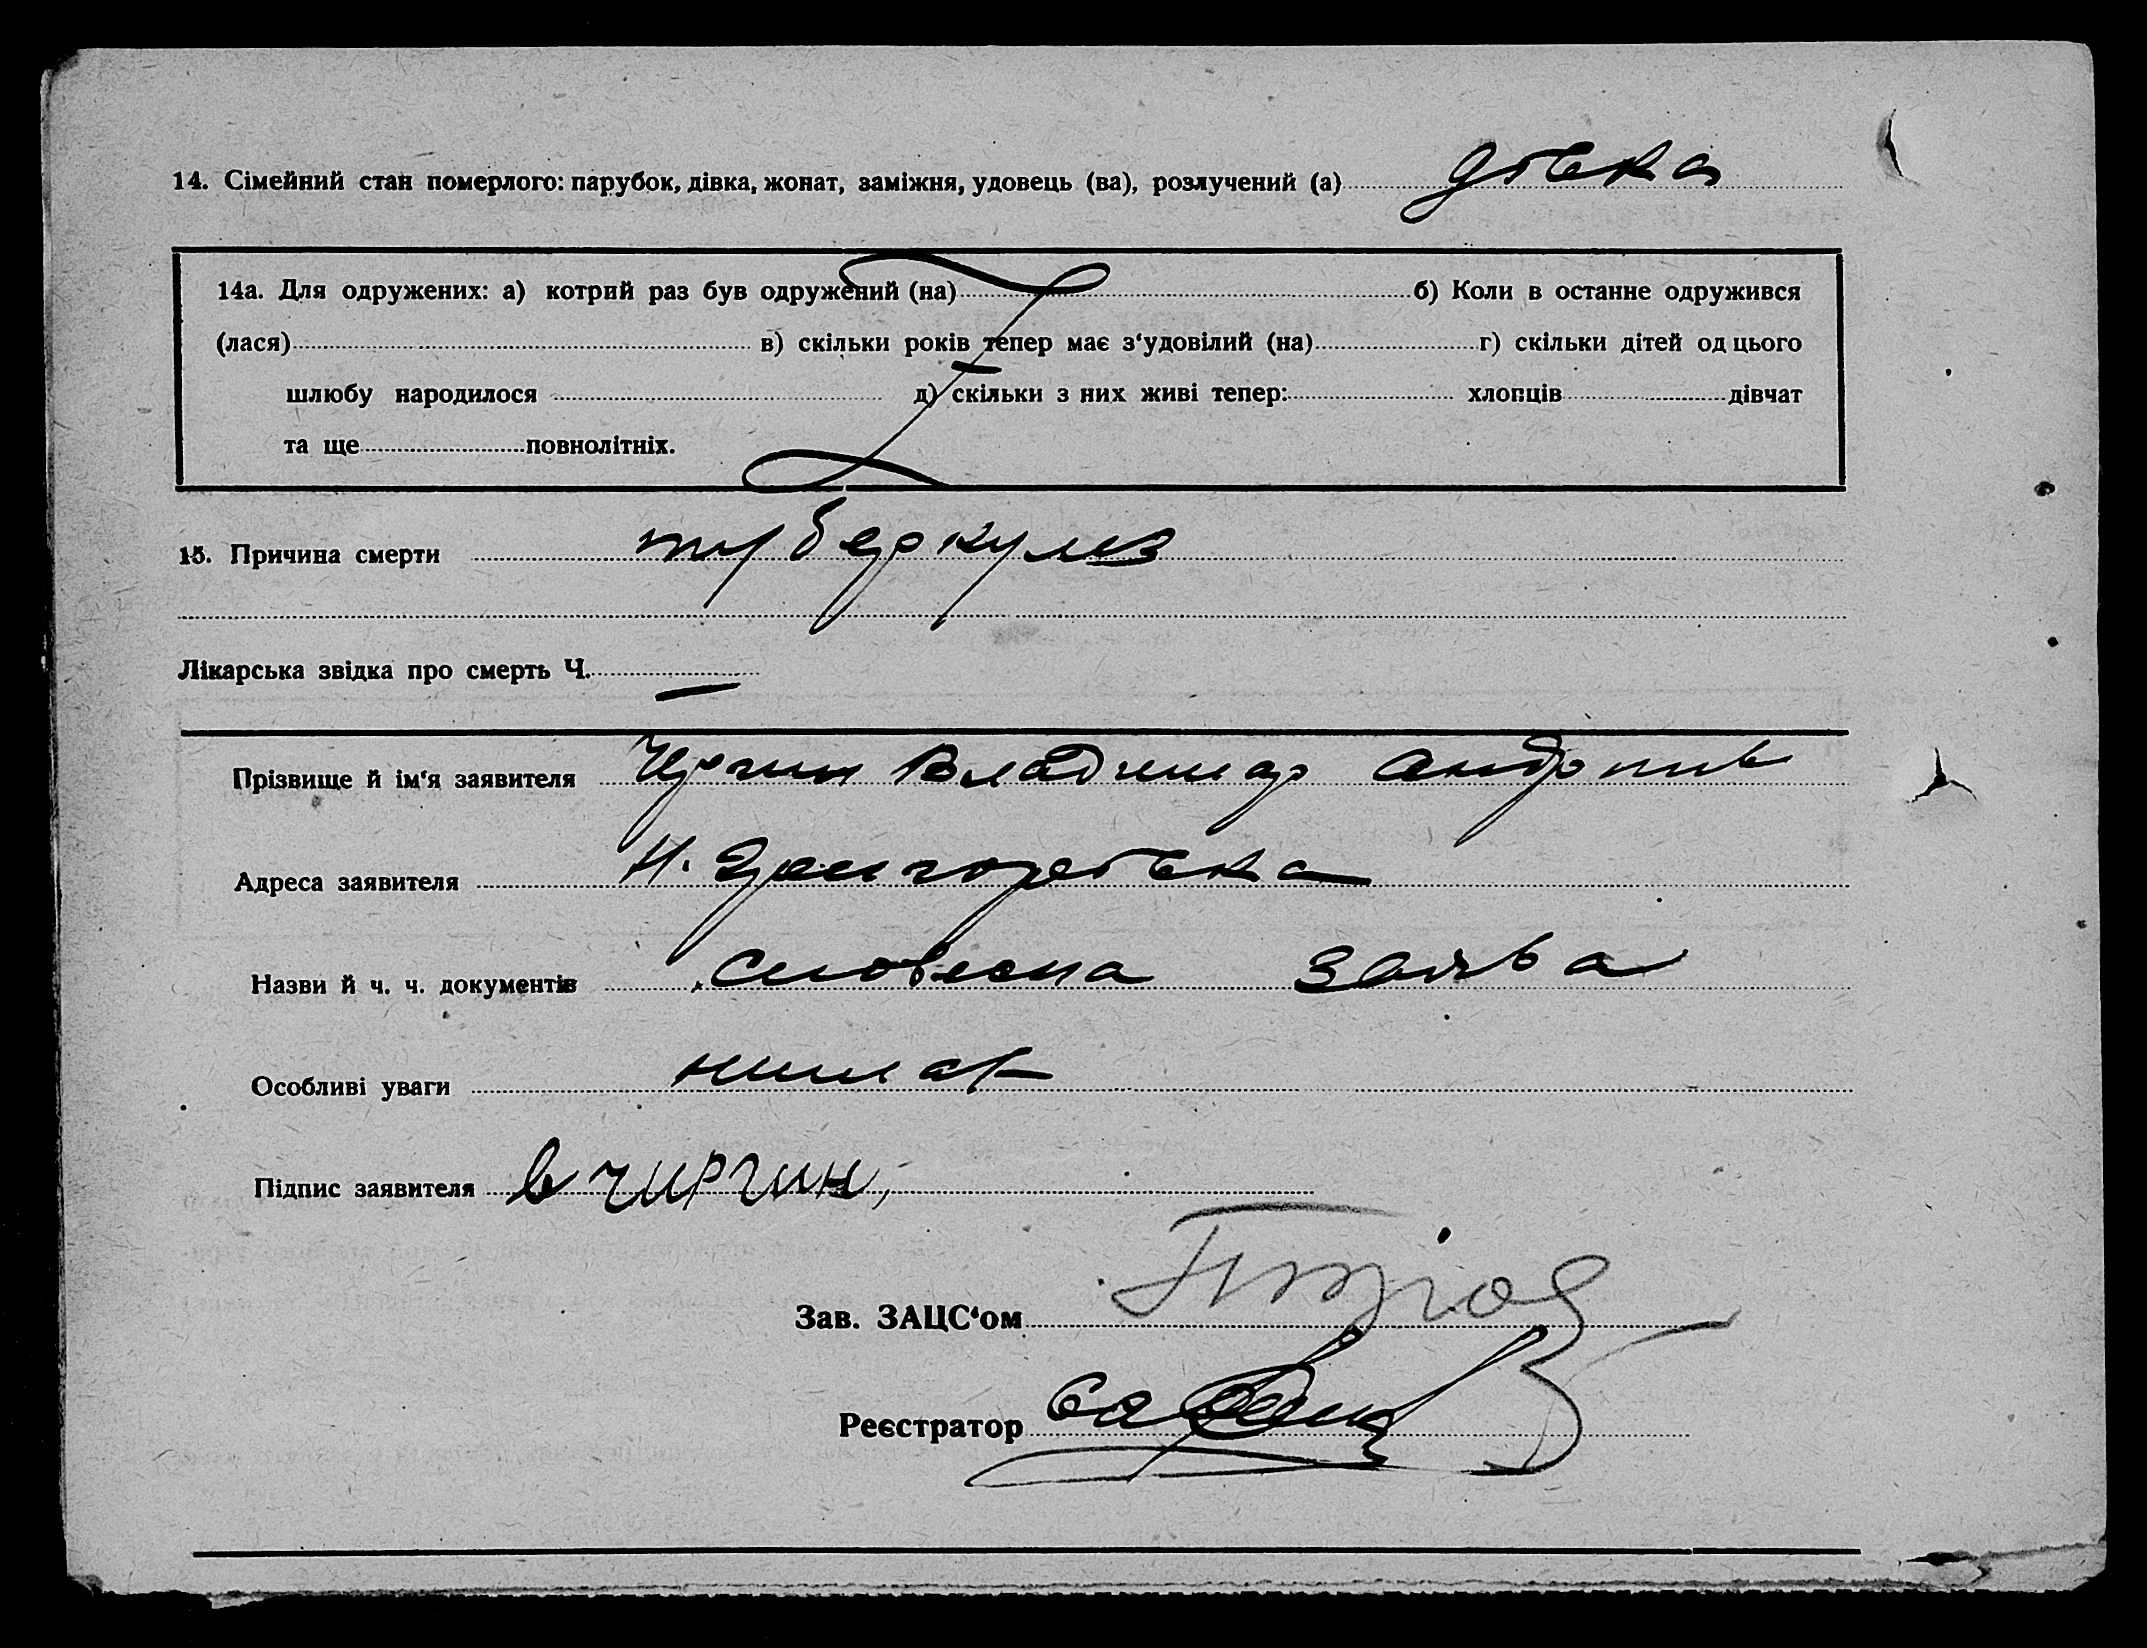 14. Сімейний стан померлого: парубок, дівка, жонат, заміжня, удовець (ва), розлучений (а) дівка
14а. Для одружених: а) котрий раз був одружений (на) б) Коли в останне одружився
(лася) в) скільки років тепер має з‘удовілий (на) г) скільки дітей од цього
шлюбу народилося д) скільки з них живі тепер: хлопців дівчат
та ще повнолітніх.
15. Причина смерти туберкулез
Лікарська звідка про смерть Ч. —
Прізвище й ім‘я заявителя Владимар
Адреса заявителя
Назви й ч. ч. документів словесна заява
Особливі уваги нимає
Підпис заявителя в чиргин,
Зав. ЗАЦС‘ом
Реєстратор